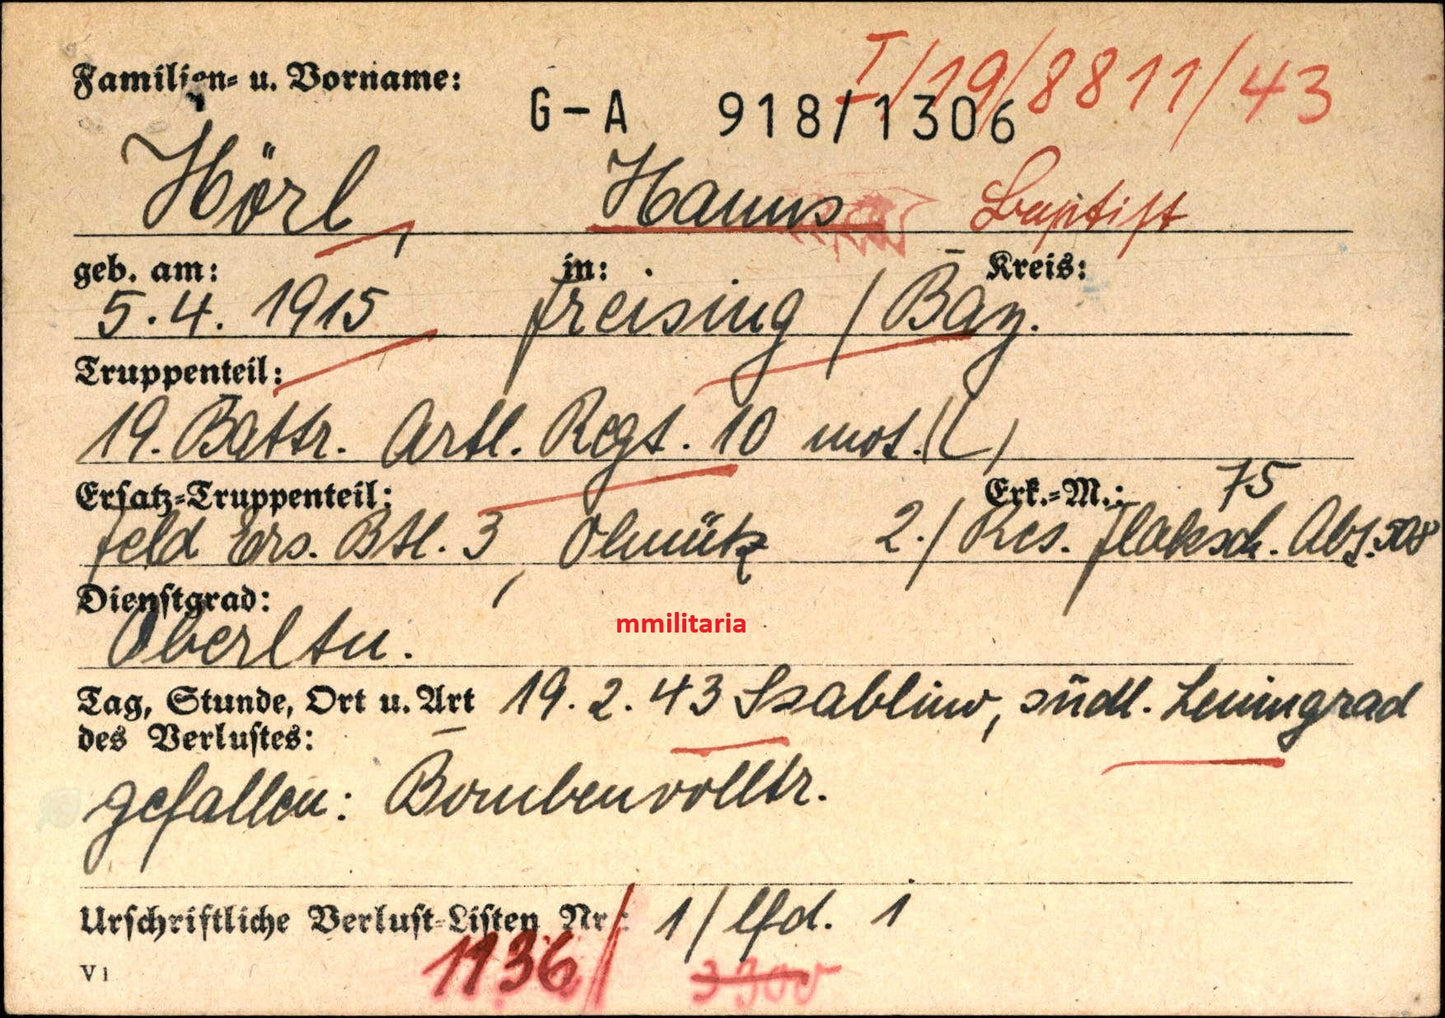 Familien- u. Vorname:
I/19/8811/43
G-A 918/1306
Hörl, Hanns Baptist
geb. am: in: Kreis:
5.4. 1915 Freising / Bay.
Truppenteil:
19. Battr. Artl. Regt. 10 mot. (L)
Ersatz-Truppenteil: Erk.-M.: 75
Feld Ers. Btl. 3, Olmütz 2./ Res. Flaksch. Abt. 508
Dienstgrad:
Oberltn.
mmilitaria
Tag, Stunde, Ort u. Art 19.2.43 Ssablino, südl. Leningrad
des Verlustes:
gefallen: Bombenvolltr.
Urschriftliche Verlust-Listen Nr.: 1/lfd. 1
1136/
V 1